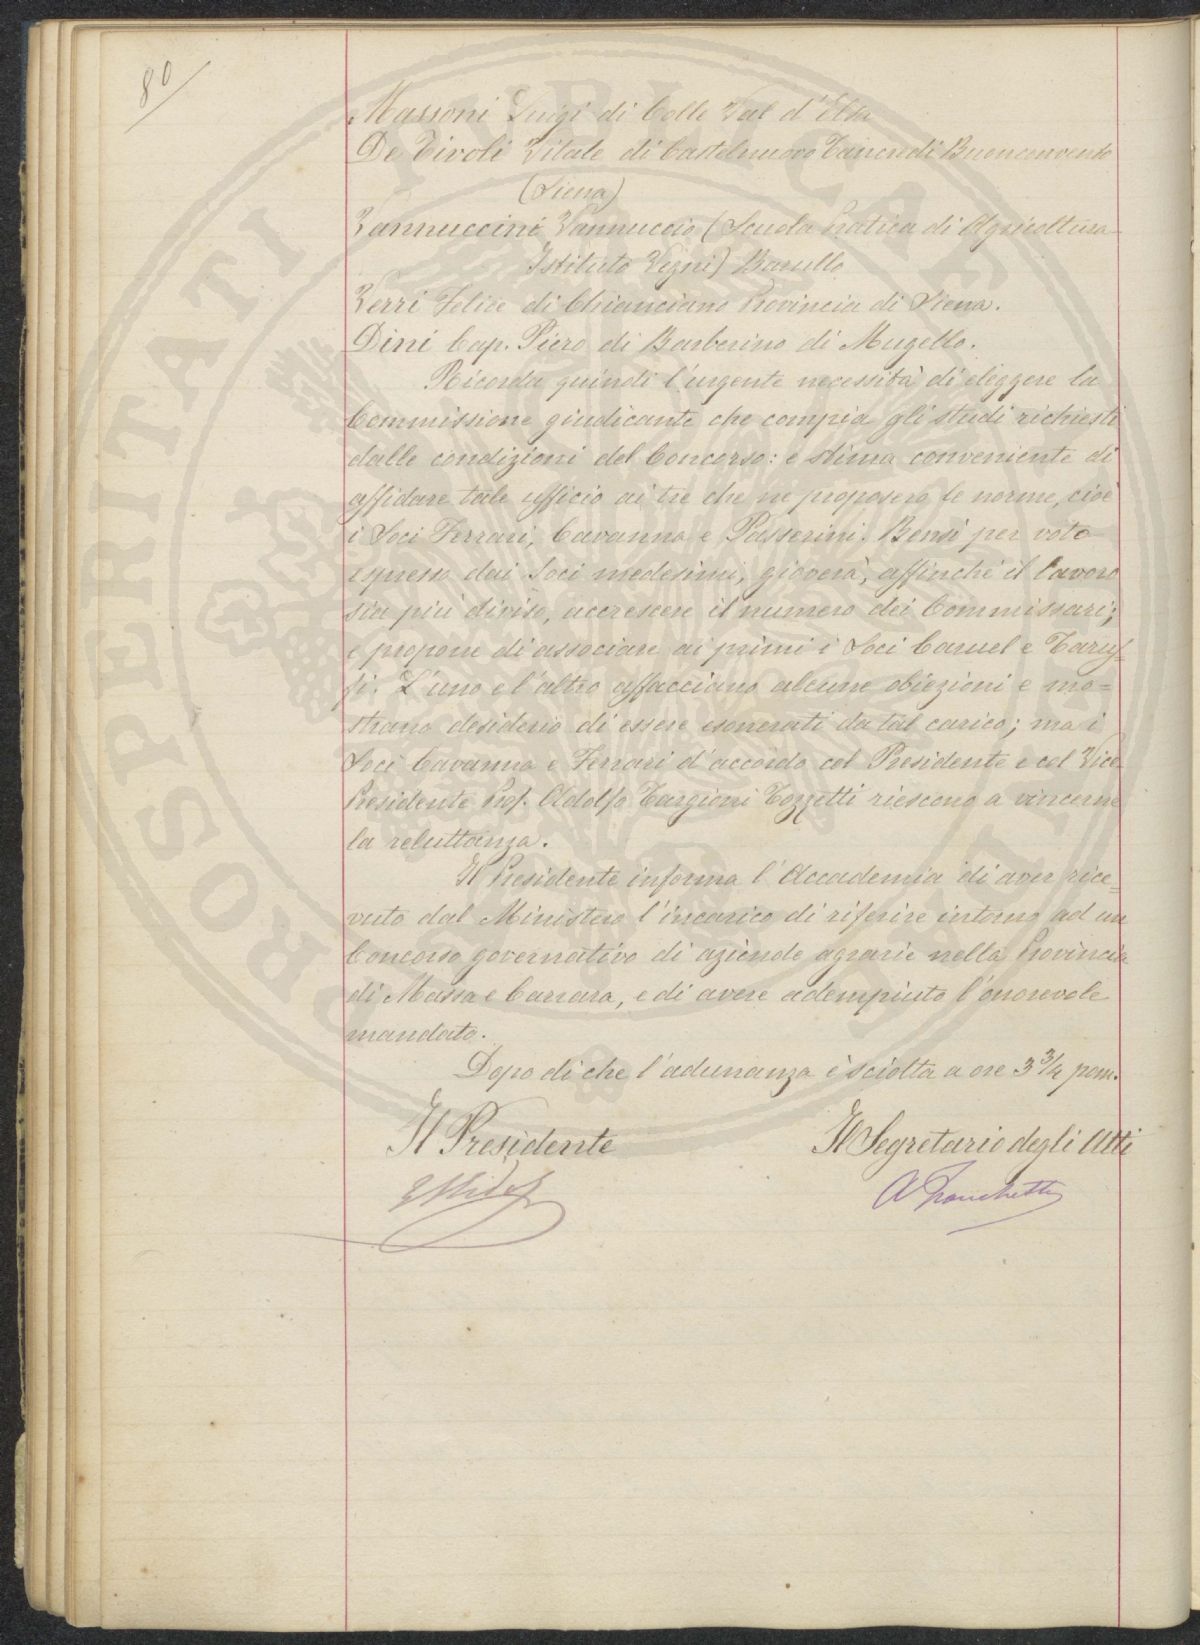 80
Massoni Luigi di Colle Val d'Elsa
De Tivoli Vitale di Castelnuovo Tancredi Buonconvento
(Siena)
Vannuccini Vannuccio (Scuola Pratica di Agricoltura
Istituto Vegni) Barullo
Verri Felice di Chianciano Provincia di Siena.
Dini Cap. Piero di Barberino di Mugello.
Ricorda quindi l'urgente necessità di eleggere la
Commissione giudicante che compia gli studi richiesti
dalle condizioni del Concorso: e stima conveniente di
affidare tale ufficio ai tre che ne proposero le norme, cioè
i Soci Ferrari, Cavanna e Passerini. Bensì per voto
espresso dai Soci medesimi, gioverà, affinchè il lavoro
sia più diviso, accrescere il numero dei Commissari;
e propone di associare ai primi i Soci Caruel e Taruf=
fi. L'uno e l'altro affacciano alcune obiezioni e mo=
strano desiderio di essere esonerati da tal carico; ma i
Soci Cavanna e Ferrari d'accordo col Presidente e col Vice
Presidente Prof. Adolfo Targioni Tozzetti riescono a vincerne
la reluttanza.
Il Presidente informa l'Accademia di aver rice=
vuto dal Ministero l'incarico di riferire intorno ad un
Concorso governativo di aziende agrarie nella Provincia
di Massa e Carrara, e di avere adempiuto l'onorevole
mandato.
Dopo di che l'adunanza è sciolta a ore 3 3/4 pom.
Il Presidente
Il Segretario degli Atti
A Franchetti
PROSPERITATI PVBLICAE